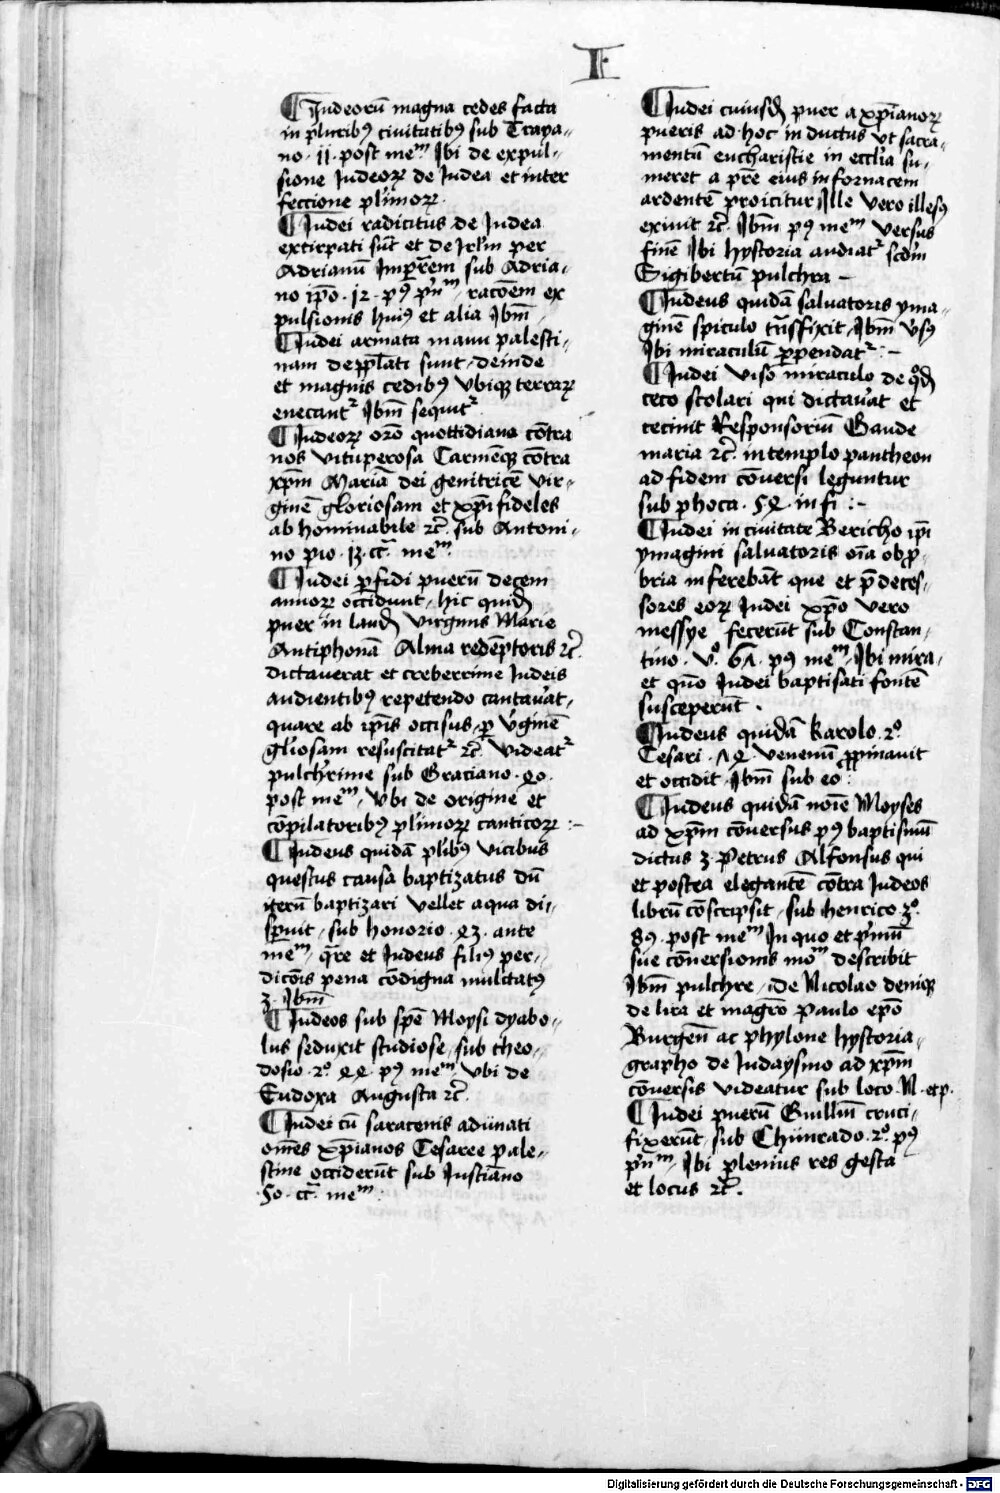 I
¶ Iudeorū magna cedes facta
in plurib9 ciuitatib9 sub Traya-
no · 11 · post meᵐ Ibi de expul-
sione Iudeoꝝ de Iudea et inter
feccione pl'imoꝝ.
¶ Iudei radicitus de Iudea
extirpati sūt et de Irl'm per
Adrianū Impr̄em sub Adria-
no ip̄o · 12 · p9 pⁱnᵐ, rac̄oem ex
pulsionis hui9 et alia Ibm̄
¶ Iudei armata manu palesti-
nam depp̄lati sunt, deinde
et magnis cedib9 vbiqꝫ terraꝝ
enecantʳ Ibm̄ sequitʳ
¶ Iudeoꝝ oro quottidiana cōtra
nos vituperosa Carmēqꝫ cōtra
xpm̄ Mariā dei genitricē vir-
ginē gloriosam et xp̄i fideles
abhominabile ⁊c̄. sub Antoni-
no pio · 13 · cᵃ meᵐ.
¶ Iudei ꝑfidi puerū decem
annoꝝ occidunt, hic quidē
puer in laudē virginis Marie
Antiphonā Alma redēptoris ⁊c̄.
dictauerat et creberrime Iudeis
audientib9 repetendo cantau'at,
quare ab ip̄is occisus, ꝑ v'ginē
gl'iosam resuscitatʳ ⁊c̄. videatʳ
pulch'rime sub Graciano · 40 ·
post meᵐ, vbi de origine et
cōpilatorib9 pl'imoꝝ canticoꝝ :-
¶ Iudeus quidā pl'ib9 vicibus
questus causa baptizatus dū
iterū baptizari vellet aqua dis-
ꝑuit, sub honorio · 43 · ante
meᵐ, qr̄e et Iudeus fili9 per-
dicōis pena cōdigna mulctat9
3 · Ibm̄
¶ Iudeos sub spē Moysi dyabo-
lus seduxit studiose, sub theo-
dosio · 2º · 44 · p9 meᵐ, vbi de
Eudoxa Augusta ⁊c̄.
¶ Iudei cū saracenis adunati
om̄es xp̄ianos Cesaree pale-
stine occiderūt sub Iustiāno
· 50 · cᵃ meᵐ.
¶ Iudei cuiusdā puer a xp̄ianoꝝ
pueris ad hoc inductus vt sacra-
mentū eucharistie in eccl'ia su-
meret a pr̄e eius in fornacem
ardentē proicitur Ille vero illes9
exiuit ⁊c̄. Ibm̄ p9 meᵐ versus
finē Ibi hystoria audiatʳ scd'm
Sigibertū pulchra –
¶ Iudeus quidā saluatoris yma-
ginē spiculo trāsfixit, Ibm̄ v's9
Ibi miraculū ꝑpendatʳ :–
¶ Iudei viso miraculo de qºdā
ceco scolari qui dictau'at et
cecinit Responsoriū Gaude
maria ⁊c̄. in templo pantheon
ad fidem cōuersi leguntur
sub phoca · 54 · in fi :–
¶ Iudei in ciuitate Bericho ip̄i
ymagini saluatoris oīa obp̄-
bria inferebāt que et p̄deces-
sores eoꝝ Iudei xp̄o vero
messye fecerūt sub Constan-
tino · vº · 67 · p9 meᵐ, Ibi mira-
et quō Iudei baptisati fontē
susceperūt .
¶ Iudeus quidā Karolo · 2º
Cesari · 74 · venenū ꝓpinauit
et occidit, Ibm̄ sub eo :
¶ Iudeus quidā noīe Moyses
ad xpm̄ cōuersus p9 baptismū
dictus 3 · Petrus Alfonsus qui
et postea elegantē cōtra Iudeos
librū cōscripsit, sub henrico · 3º.
89 · post meᵐ In quo et pⁱmū
sue cōuersionis moᵐ describit
Ibm̄ pulchre, De Nicolao deniqꝫ
de lira et magr̄o Paulo ep̄o
Burgen̄ ac phylone hystoria-
grapho de Iudaysmo ad xpm̄
cōuersis videatur sub loco N. et p.
¶ Iudei puerū Guillm̄ cruci-
fixerūt, sub Chunrado · 2º · p9
pⁱnᵐ, Ibi plenius res gesta
et locus ⁊c̄.
Digitalisierung gefördert durch die Deutsche Forschungsgemeinschaft - DFG